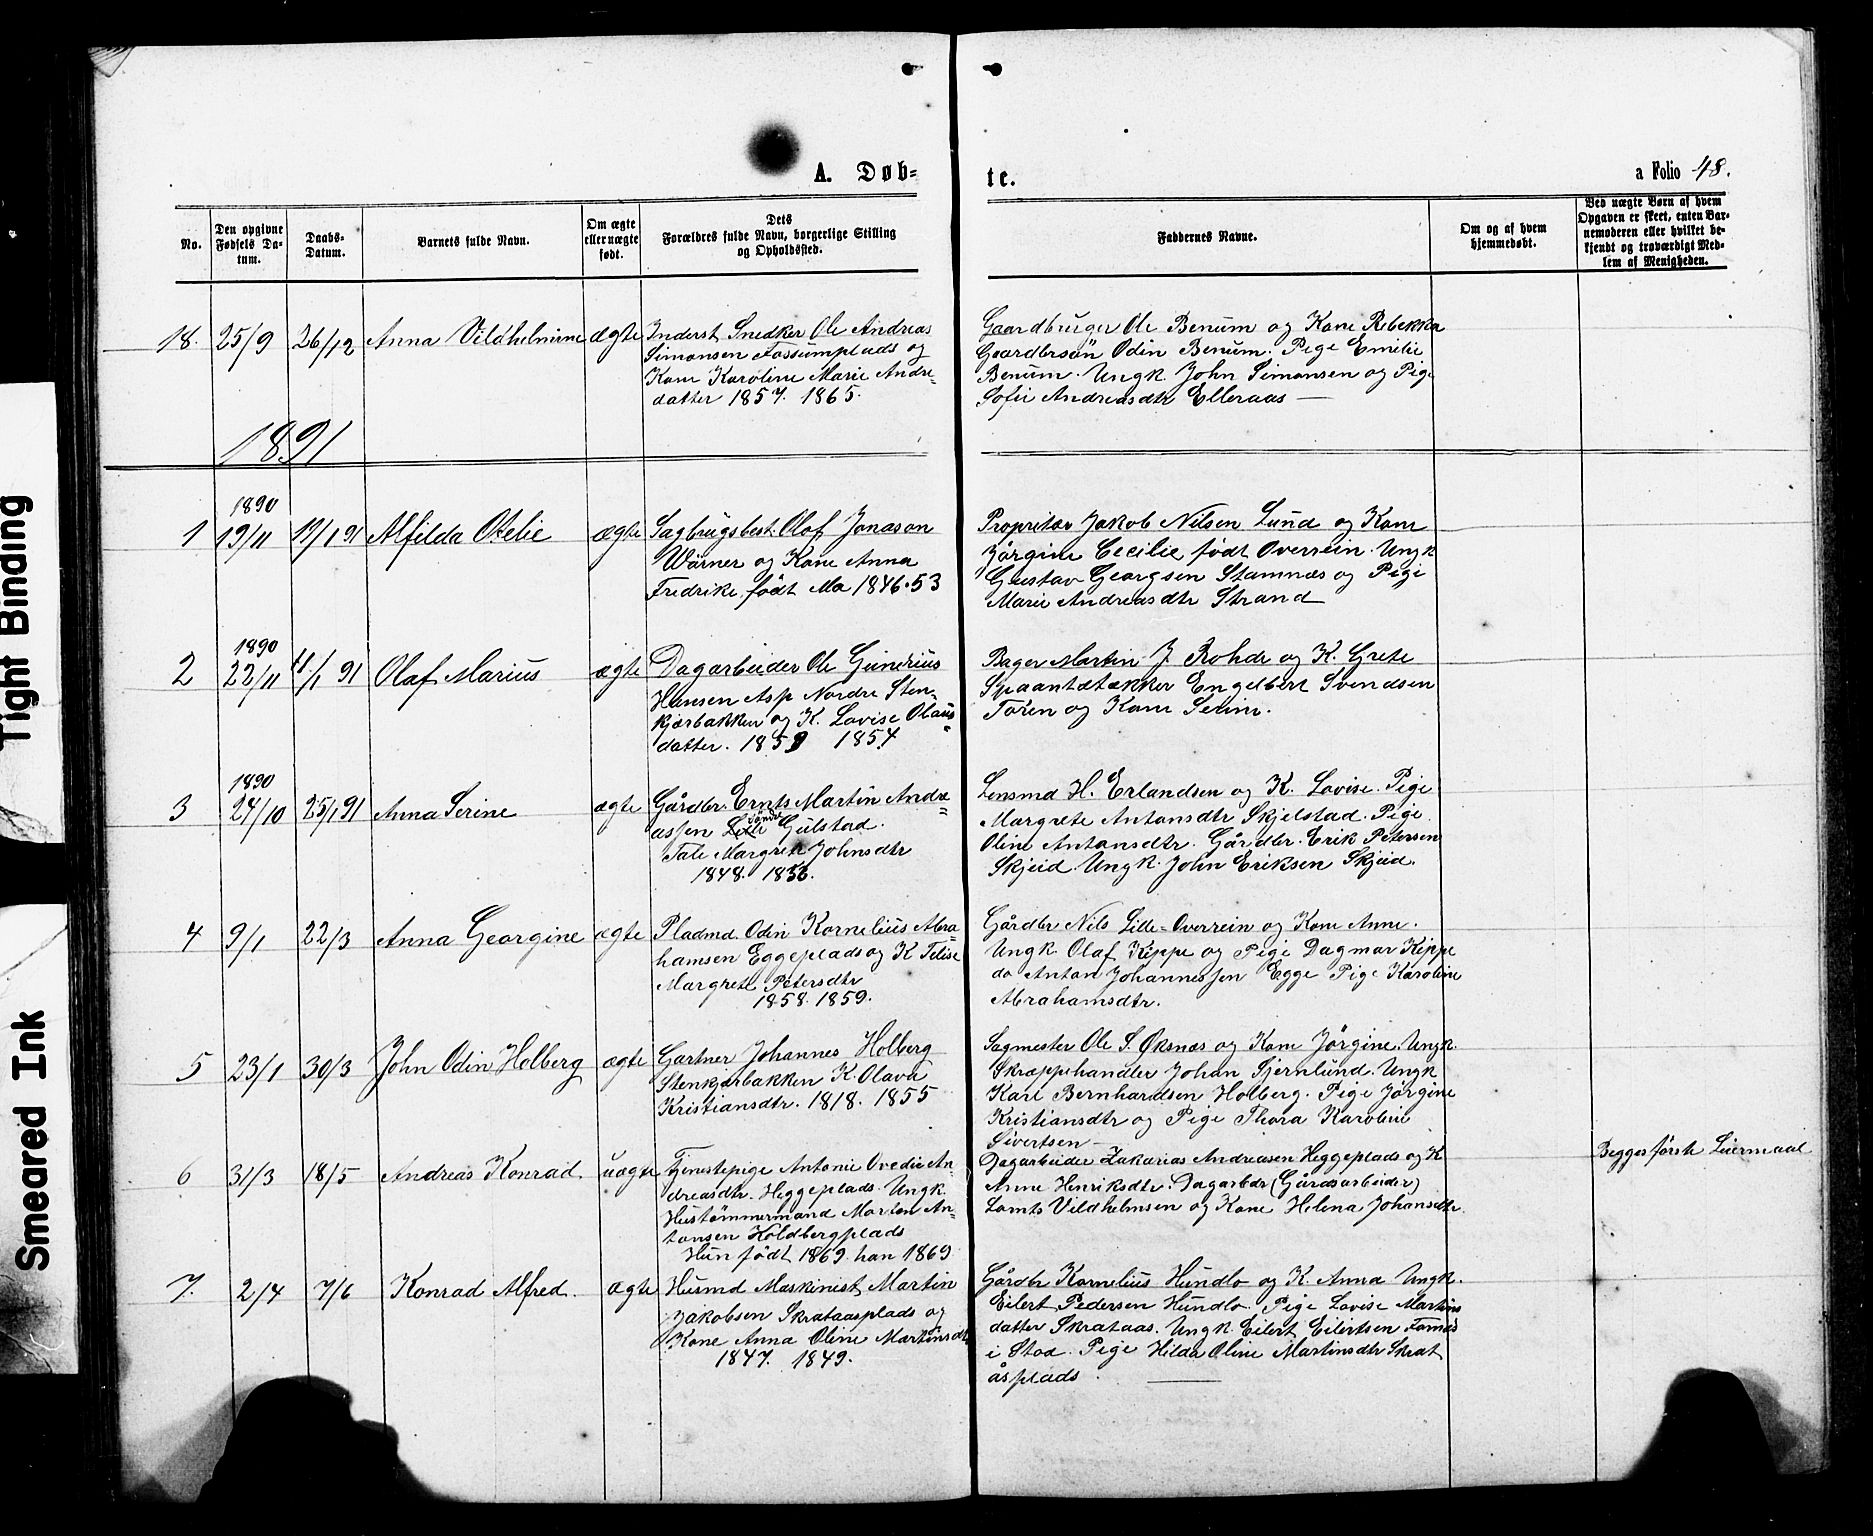 Tight Binding
Smeared Ink
A. Døb=
te.
a Folio 48.
No.
Den opgivne Fødsels Da-
tum.
Daabs-
Datum.
Barnets fulde Navn.
Om ægte
eller uægte
født.
Dets
Forældres fulde Navn, borgerlige Stilling
og Opholdssted.
Faddernes Navne.
Om og af hvem
hjemmedøbt.
Ved uægte Børn af hvem
Opgaven er skeet, enten Bar-
nemoderen eller hvilket be-
kjendt og troværdigt Med-
lem af Menigheden.
18. 25/9 26/12 Anna Vildhelmine ægte
Inderst Snedker Ole Andreas
Simonsen Fossumplads og
Kone Karoline Marie Andre-
datter 1857. 1865.
Gaardbruger Ole Benum og Kone Rebekka
Gaardbrsön Odin Benum. Pige Emilie
Benum. Ungk. John Simonsen og Pige
Sofie Andreasdtr Elleraas —
1891
1 1890 19/11 19/1 91 Alfilda Otelie ægte
Sagbrugsbest. Olof Jonason
Wärner og Kone Anna
Fredrike født Mo 1846.53
Propritær Jakob Nilsen Lund og Kone
Jörgine Cecilie født Overrein. Ungk
Gustav Georgsen Stamnæs og Pige
Marie Andreasdtr Strand
2 1890 22/11 11/1 91 Olaf Marius ægte
Dagarbeider Ole Gunerius
Hansen Asp Nordre Sten-
kjærbakken og K. Lovise Olaus-
datter. 1859 1854
Bager Martin J. Rohde og K. Grete
Spaantdtækker Engelbert Svendsen
Toren og Kone Serine.
3 1890 24/10 25/1 91 Anna Serine ægte
Gårdbr. Ernts Martin Andre-
assen Lille Söndre Gulstad.
Tale Margrete Johnsdtr
1848. 1856.
Lensmd H. Erlandsen og K. Lovise. Pige
Margrete Antonsdtr Skjelstad. Pige
Oline Antonsdtr. Gårdbr. Erik Petersen
Skjeid. Ungk. John Eriksen Skjeid.
4 9/1 22/3 Anna Georgine ægte
Pladmd. Odin Kornelius Abra-
hamsen Eggeplads og K Telise
Margrete Petersdtr
1858. 1859.
Gårdbr Nils Lille-Overrein og Kone Anne.
Ungk Olaf Kippe og Pige Dagmar Kippe
do Anton Johannessen Egge Pige Karoline
Abrahamsdtr.
5 23/1 30/3 John Odin Holberg ægte
Gartner Johannes Holberg
Stenkjærbakken K Olava
Kristiansdtr. 1818. 1855
Sagmester Ole S. Øksnæs og Kone Jörgine. Ungk.
Skræpphandler Johan Sjernlund. Ungk
Karl Bernhardsen Holberg. Pige Jörgine
Kristiansdtr og Pige Thora Karoline
Sivertsen —
6 31/3 18/5 Andreas Konrad uægte
Tjenestepige Antonie Ovedie An-
dreasdtr. Heggeplads. Ungk.
Hustömmermand Morten An-
tonsen Koldbergplads
Hun født 1869. han 1869
Dagarbeider Zakarias Andreasen Heggeplads og K
Anne Henriksdtr. Dagarbdr (Gårdsarbeider)
Lornts Vildhelmsen og Kone Helena Johansdtr
Begges første Leiermaal
7. 2/4 7/6 Konrad Alfred. ægte
Husmd Maskinist Martin
Jakobsen Skrataasplads og
Kone Anna Oline Martinsdtr
1847. 1849.
Gårdbr Kornelius Hundlo og K. Anna Ungk.
Eilert Pedersen Hundlo. Pige Lovise Martins
datter Skrataas. Ungk. Eilert Eilertsen Fornes
i Stod. Pige Hilda Oline Martinsdtr Skrat
åsplads.